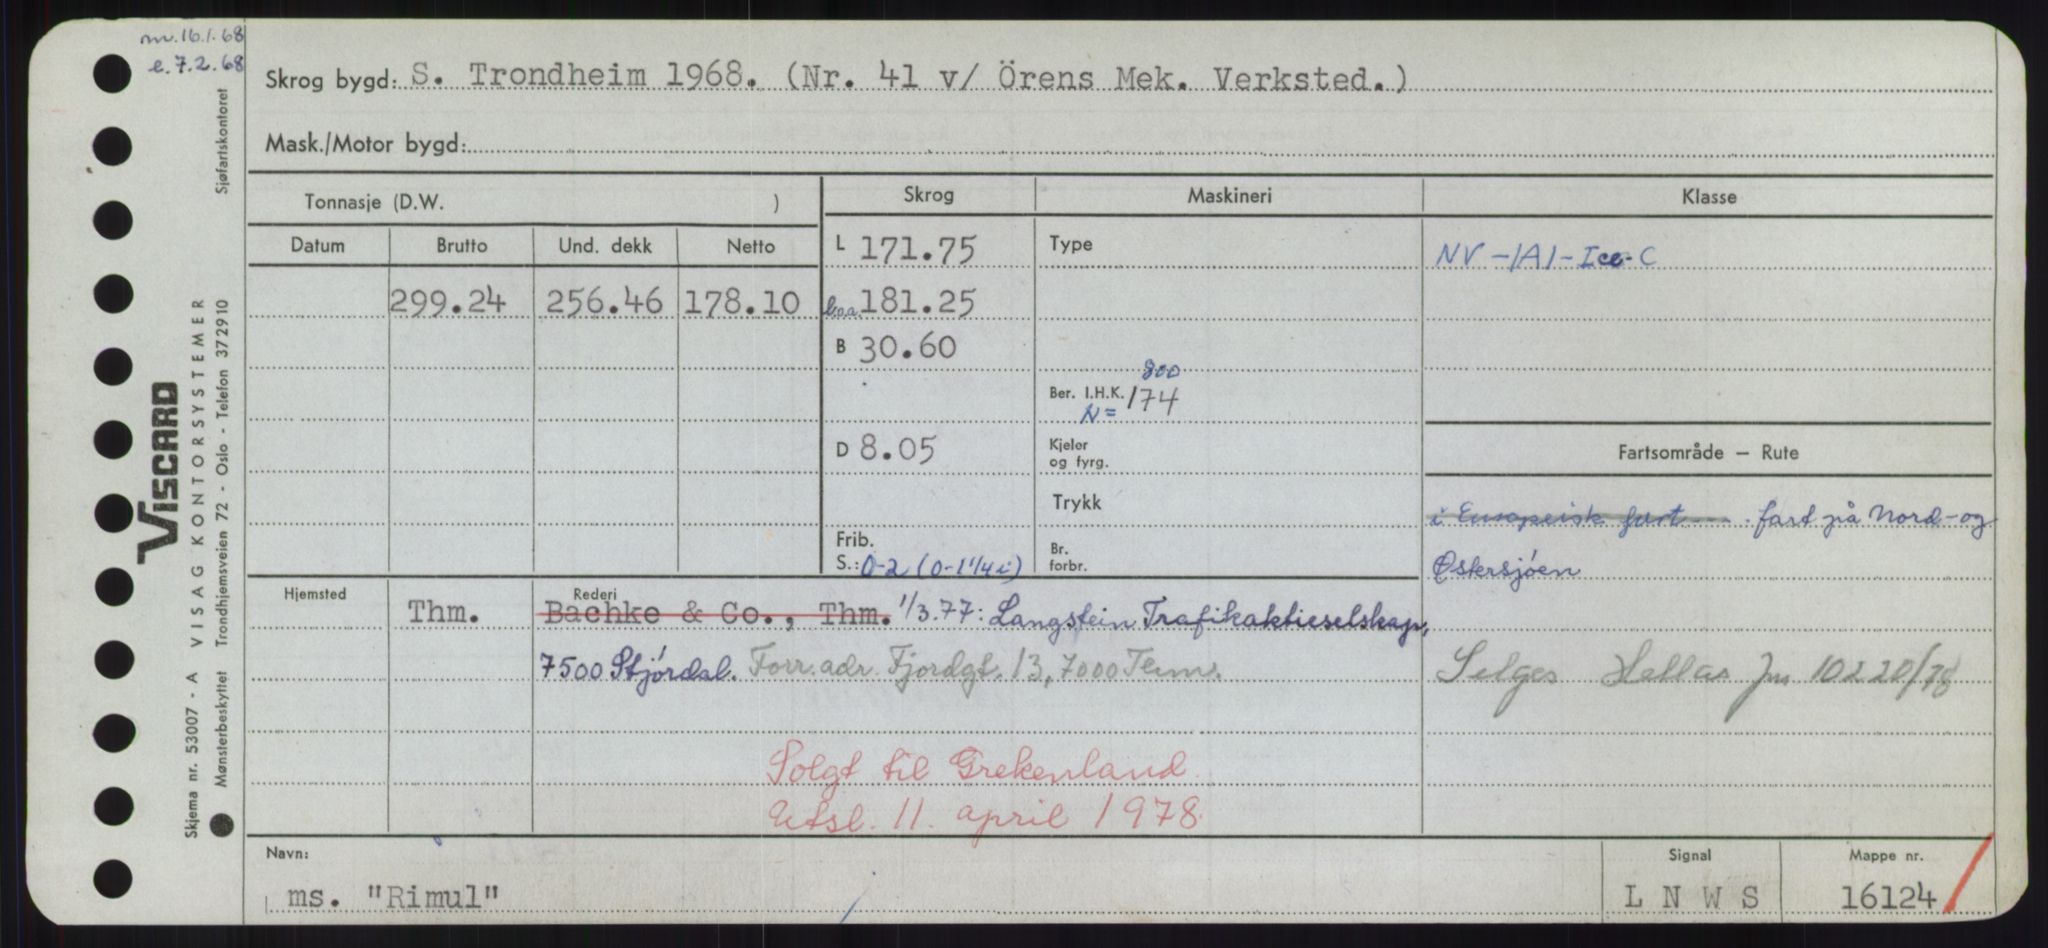 nv. 16.1.68
e. 7.2.68
Skrog bygd: S. Trondheim 1968. (Nr. 41 v/ Örens Mek. Verksted.)
Mask./Motor bygd:
Tonnasje (D.W. )
Skrog
Maskineri
Klasse
Datum
Brutto
Und. dekk
Netto
L 171.75
Type
NV -1A1- Ice-C
299.24
256.46
178.10
b.o.a. 181.25
B 30.60
800
Ber. I.H.K. 174
N=
D 8.05
Kjeler
og fyrg.
Fartsområde – Rute
Trykk
i Europeisk fart ... fart på Nord- og
Østersjöen
Frib.
S.: 0-2 (0-1 1/4 i)
Br.
forbr.
Hjemsted
Rederi
Thm.
Bachke & Co., Thm. 1/3.77: Langstein Trafikaktieselskap,
7500 Stjördal. Forr. adr. Fjordgt. 13, 7000 Thm.
Selges Hellas Jnr 10220/78
Solgt til Grekenland
Utsl. 11. april 1978.
Navn:
ms. "Rimul"
Signal
L N W S
Mappe nr.
16124
VISCARD
VISAG KONTORSYSTEMER
Sjøfartskontoret
Trondhjemsveien 72 - Oslo - Telefon 372910
Skjema nr. 53007 - A
Mønsterbeskyttet